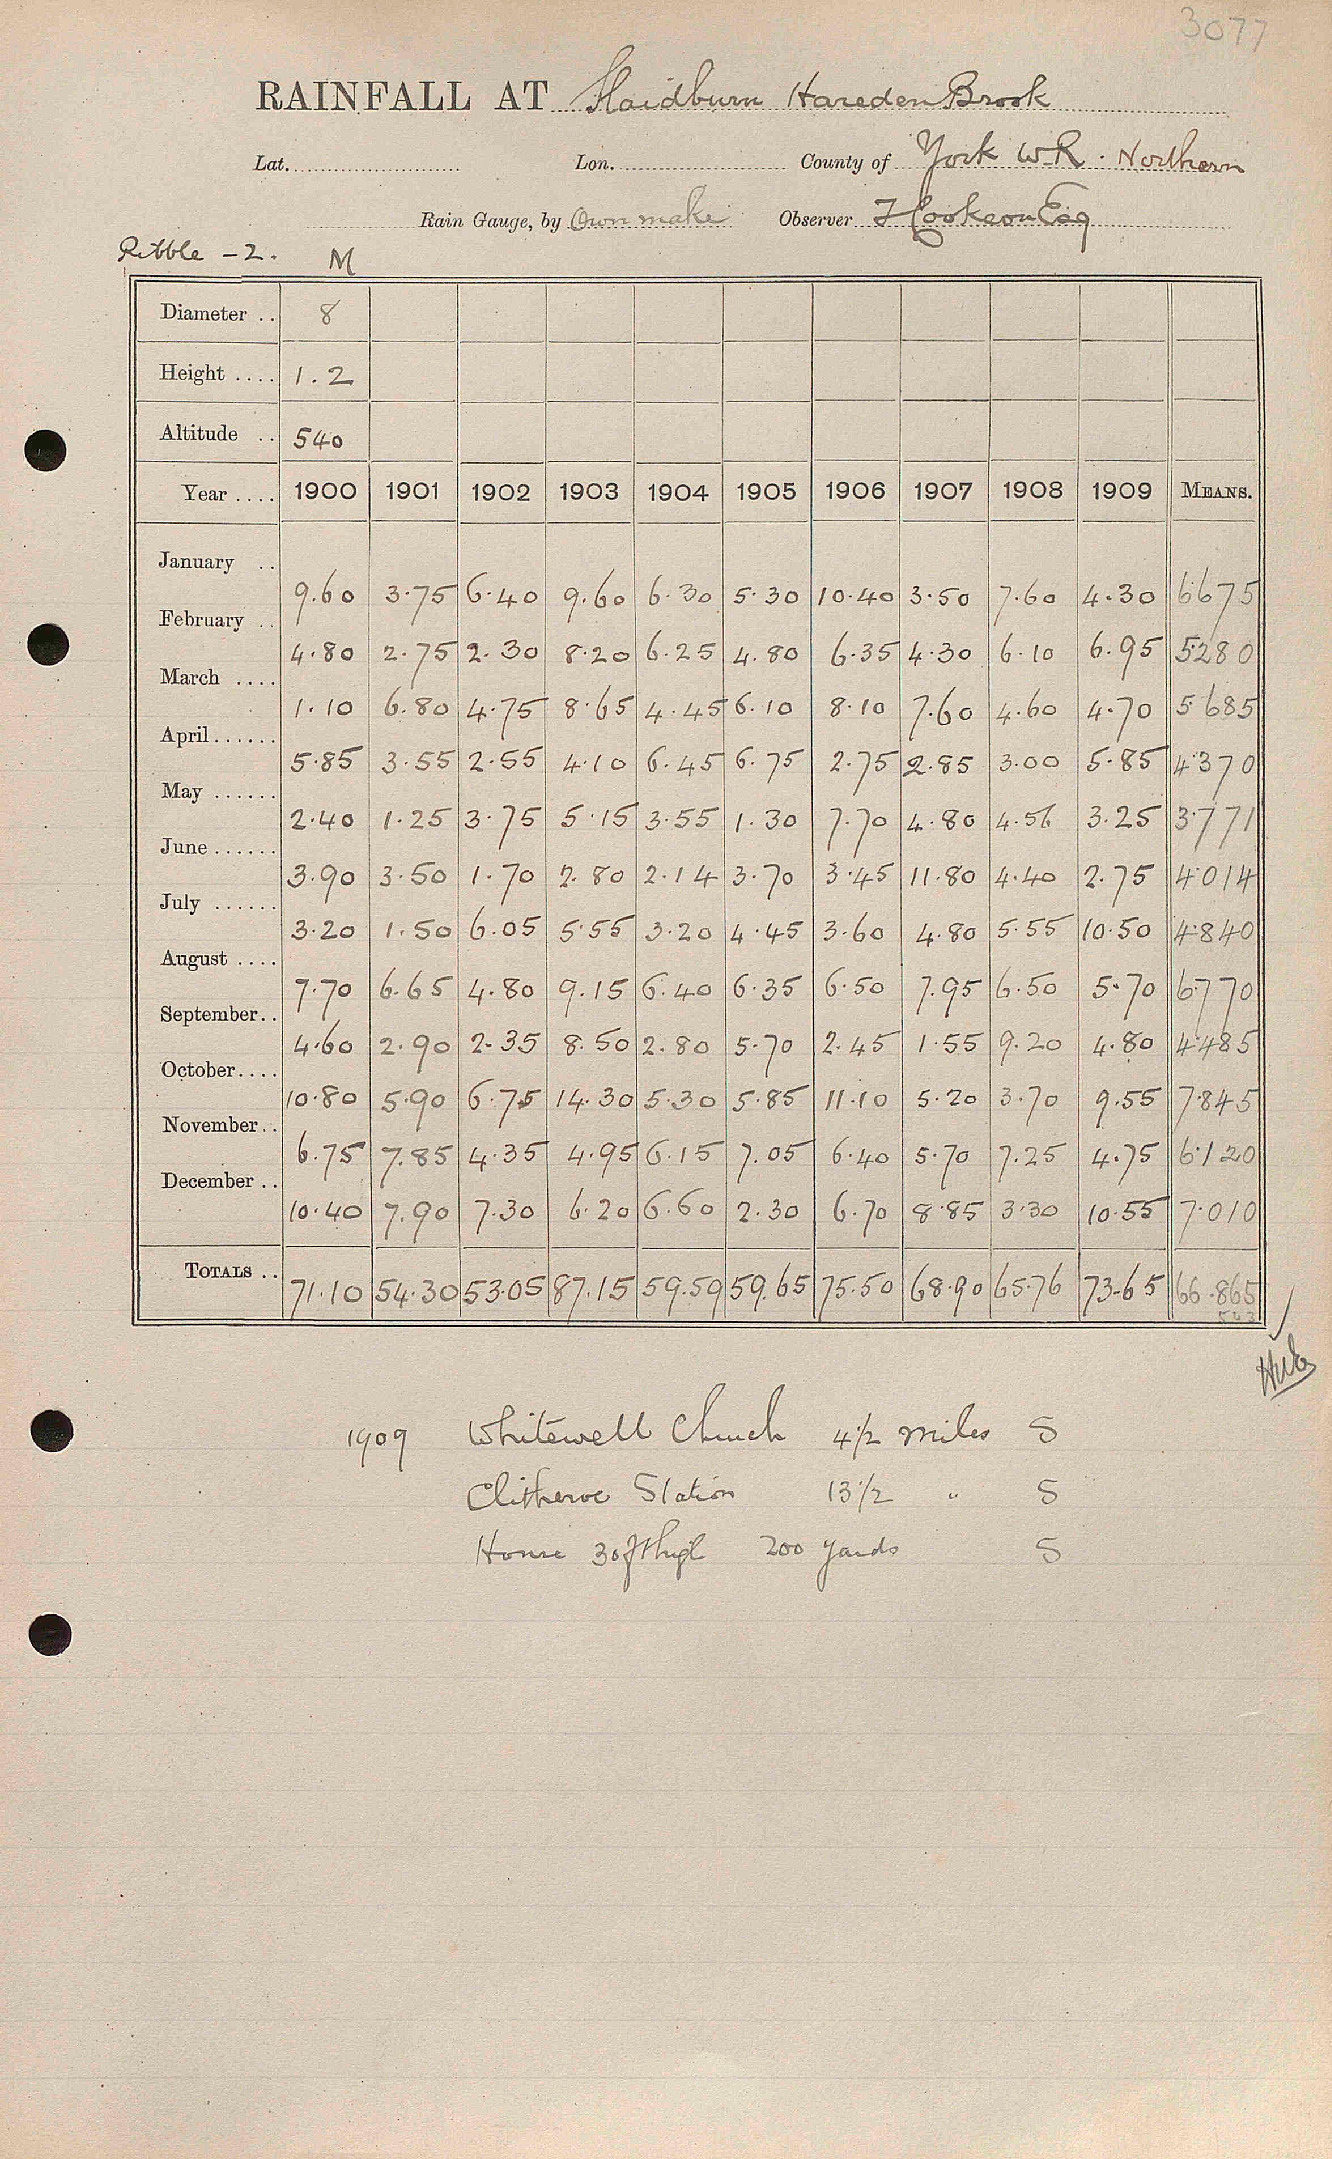 3077
RAINFALL AT Slaidburn Hareden Brook
Lat. Lon. County of York W.R. Northern
Rain Gauge, by Own make Observer T Cookson Esq
Ribble - 2. M
Diameter .. 8
Height .... 1.2
Altitude .. 540
Year .... 1900 1901 1902 1903 1904 1905 1906 1907 1908 1909 MEANS.
January .. 9.60 3.75 6.40 9.60 6.30 5.30 10.40 3.50 7.60 4.30 6.675
February .. 4.80 2.75 2.30 8.20 6.25 4.80 6.35 4.30 6.10 6.95 5.280
March .... 1.10 6.80 4.75 8.65 4.45 6.10 8.10 7.60 4.60 4.70 5.685
April ...... 5.85 3.55 2.55 4.10 6.45 6.75 2.75 2.85 3.00 5.85 4.370
May ...... 2.40 1.25 3.75 5.15 3.55 1.30 7.70 4.80 4.56 3.25 3.771
June ...... 3.90 3.50 1.70 2.80 2.14 3.70 3.45 11.80 4.40 2.75 4.014
July ...... 3.20 1.50 6.05 5.55 3.20 4.45 3.60 4.80 5.55 10.50 4.840
August .... 7.70 6.65 4.80 9.15 6.40 6.35 6.50 7.95 6.50 5.70 6.770
September .. 4.60 2.90 2.35 8.50 2.80 5.70 2.45 1.55 9.20 4.80 4.485
October .... 10.80 5.90 6.75 14.30 5.30 5.85 11.10 5.20 3.70 9.55 7.845
November .. 6.75 7.85 4.35 4.95 6.15 7.05 6.40 5.70 7.25 4.75 6.120
December .. 10.40 7.90 7.30 6.20 6.60 2.30 6.70 8.85 3.30 10.55 7.010
TOTALS .. 71.10 54.30 53.05 87.15 59.59 59.65 75.50 68.90 65.76 73.65 66.865
1909 Whitewell Church 4½ miles S
Clitheroe Station 13½ " S
House 30ft high 200 yards S